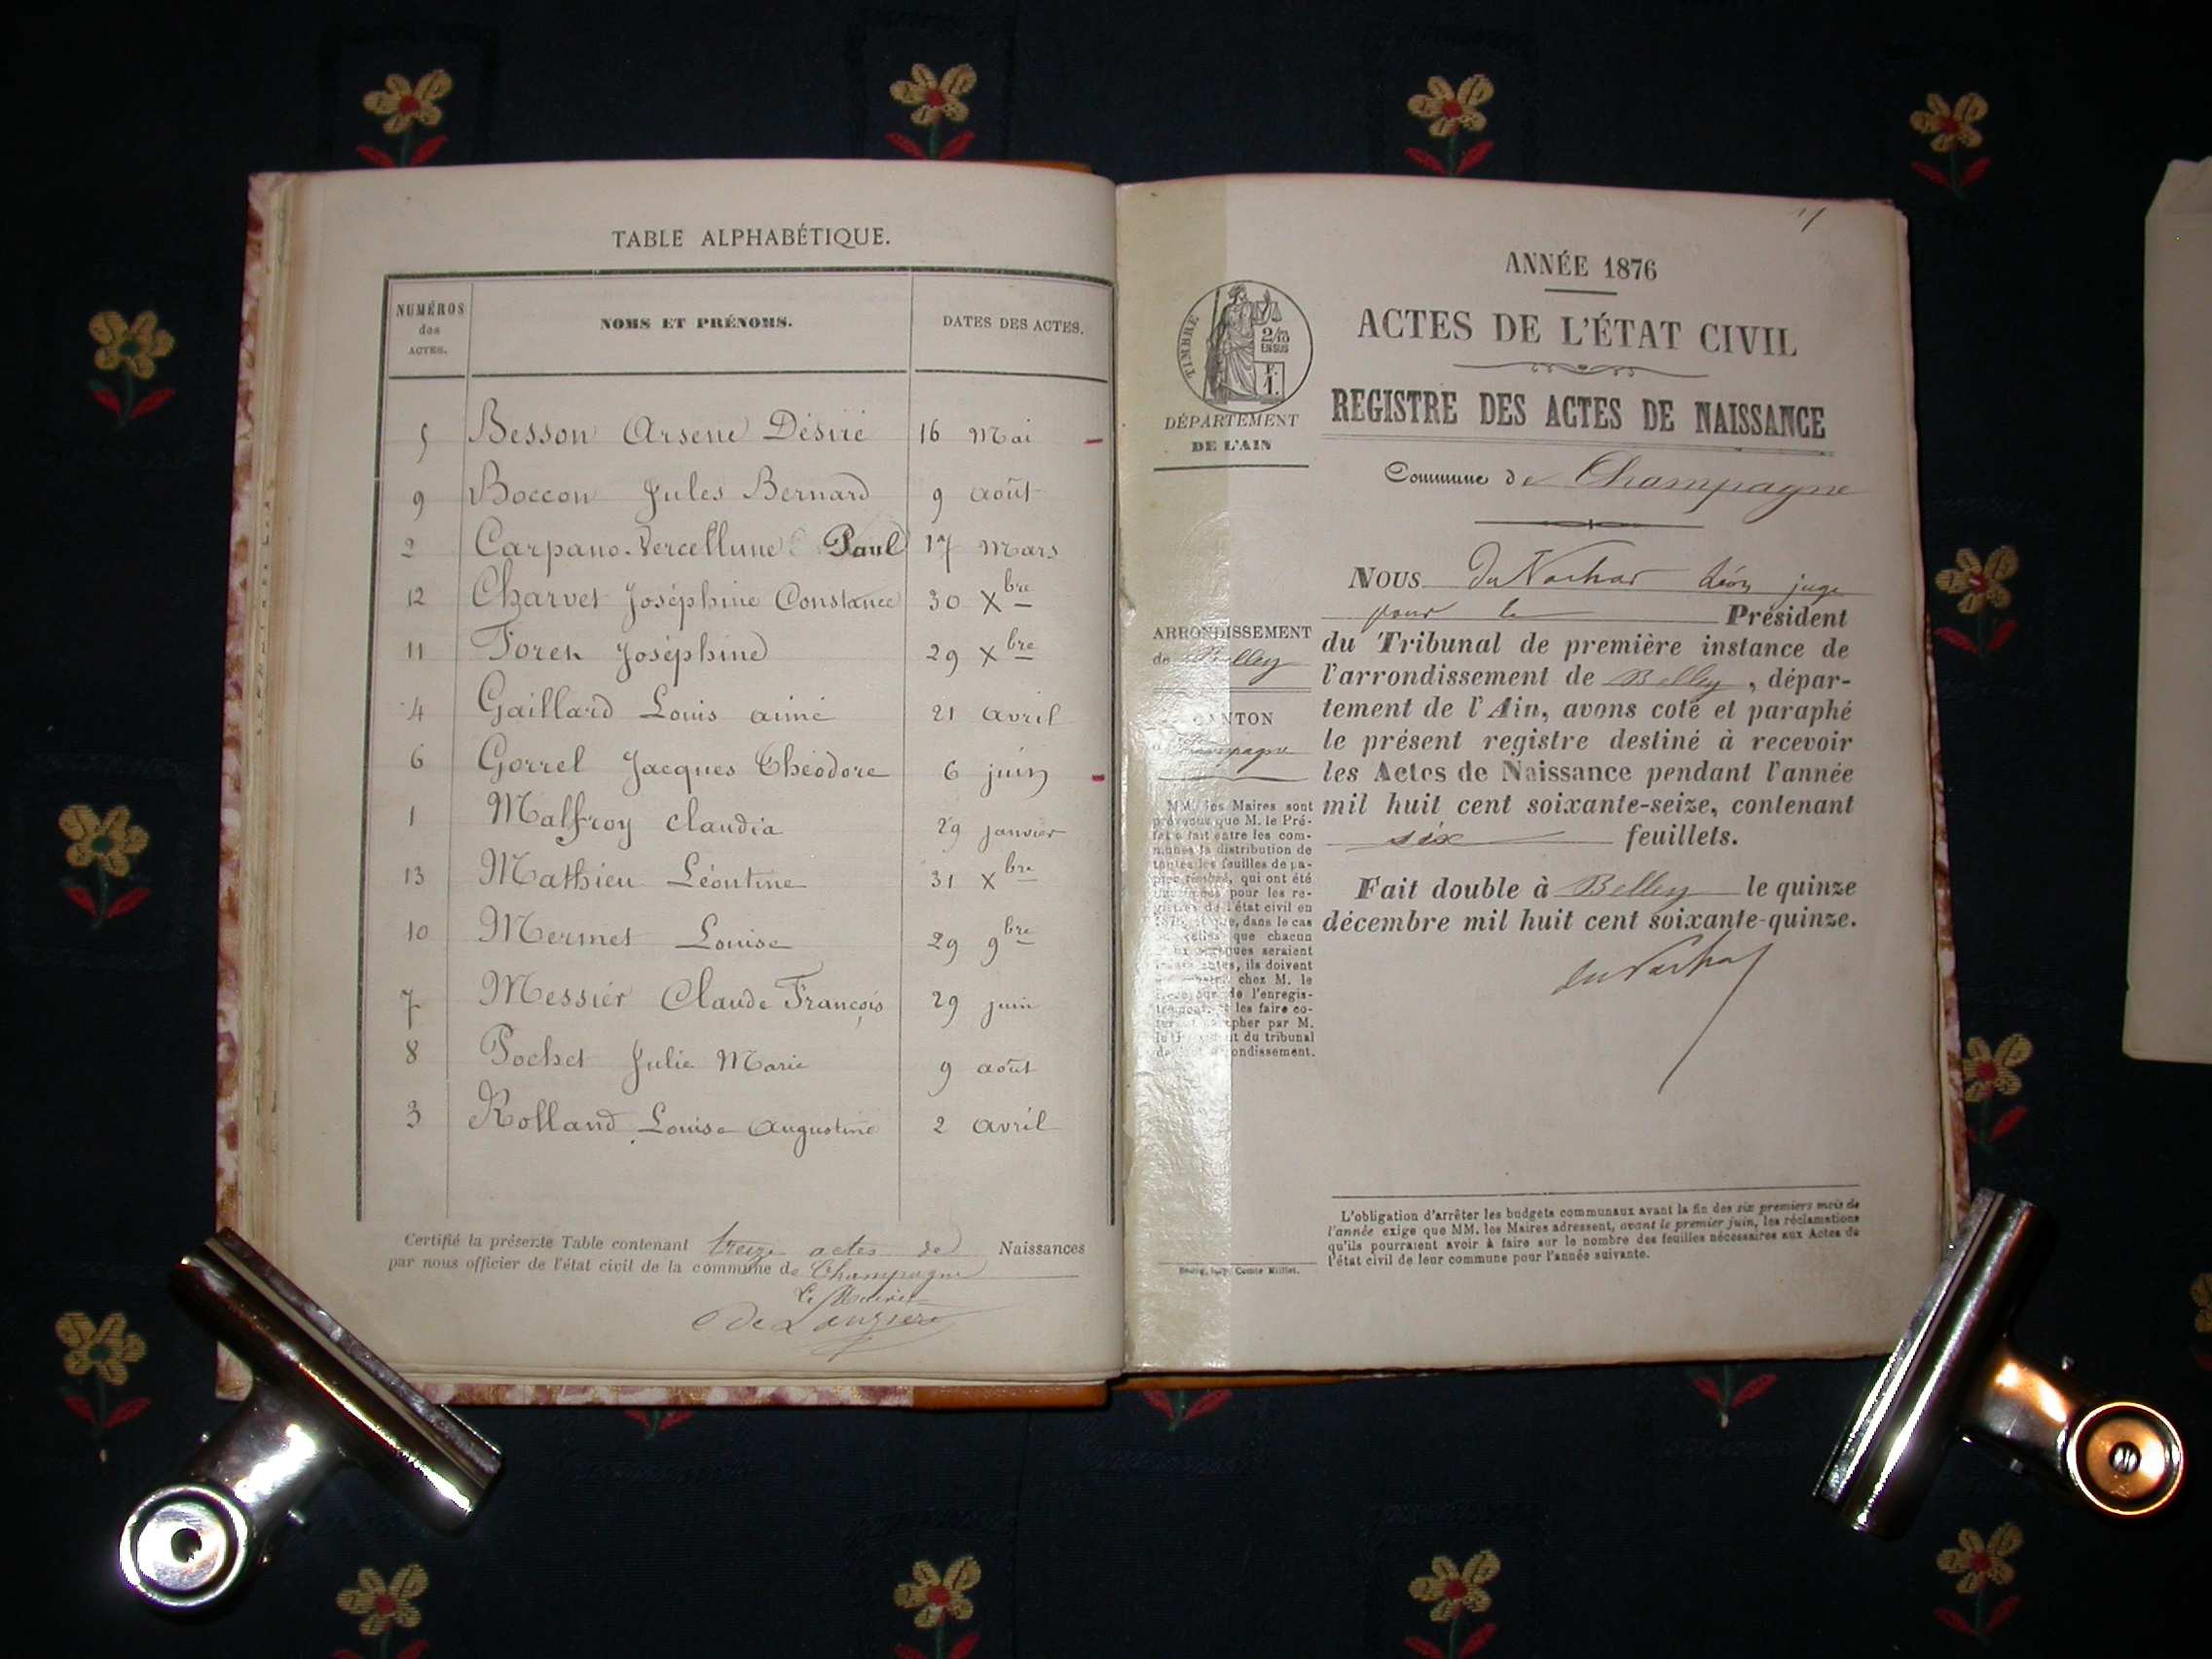 TABLE ALPHABÉTIQUE.
NUMÉROS des ACTES. NOMS ET PRÉNOMS. DATES DES ACTES.
5 Besson Arsene Désiré 16 Mai
9 Boccon Jules Bernard 9 août
2 Carpano-Vercellune Paul 17 Mars
12 Charvet Joséphine Constance 30 Xbre
11 Joséphine 29 Xbre
4 Gaillard Louis aimé 21 avril
6 Gorrel Jacques Théodore 6 juin
1 Malfroy Claudia 29 janvier
13 Mathieu Léontine 31 Xbre
10 Mermet Louise 29 9bre
7 Messier Claude François 29 juin
8 Pochet Julie Marie 9 août
3 Rolland Louise Augustine 2 avril
Certifié la présente Table contenant treize actes de Naissances
par nous officier de l'état civil de la commune de Champagne
Le Maire
ANNÉE 1876
ACTES DE L'ÉTAT CIVIL
REGISTRE DES ACTES DE NAISSANCE
Commune de Champagne
TIMBRE
2/10
EN SUS
F.
1.
DÉPARTEMENT
DE L'AIN
ARRONDISSEMENT
de Belley
CANTON
Champagne
MM. les Maires sont
prévenus que M. le Pré-
fet a fait entre les com-
munes la distribution de
toutes les feuilles de pa-
qui ont été
pour les re-
de l'état civil en
dans le cas
que chacun
seraient
ils doivent
chez M. le
de l'enregis-
les faire co-
par M.
du tribunal
Nous du Nachar Léon juge
pour le Président
du Tribunal de première instance de
l'arrondissement de Belley, dépar-
tement de l'Ain, avons coté et paraphé
le présent registre destiné à recevoir
les Actes de Naissance pendant l'année
mil huit cent soixante-seize, contenant
six feuillets.
Fait double à Belley le quinze
décembre mil huit cent soixante-quinze.
du Nachar
L'obligation d'arrêter les budgets communaux avant la fin des six premiers mois de
l'année exige que MM. les Maires adressent, avant le premier juin, les réclamations
qu'ils pourraient avoir à faire sur le nombre des feuilles nécessaires aux Actes de
l'état civil de leur commune pour l'année suivante.
Bourg, imp. Comte Milliet.